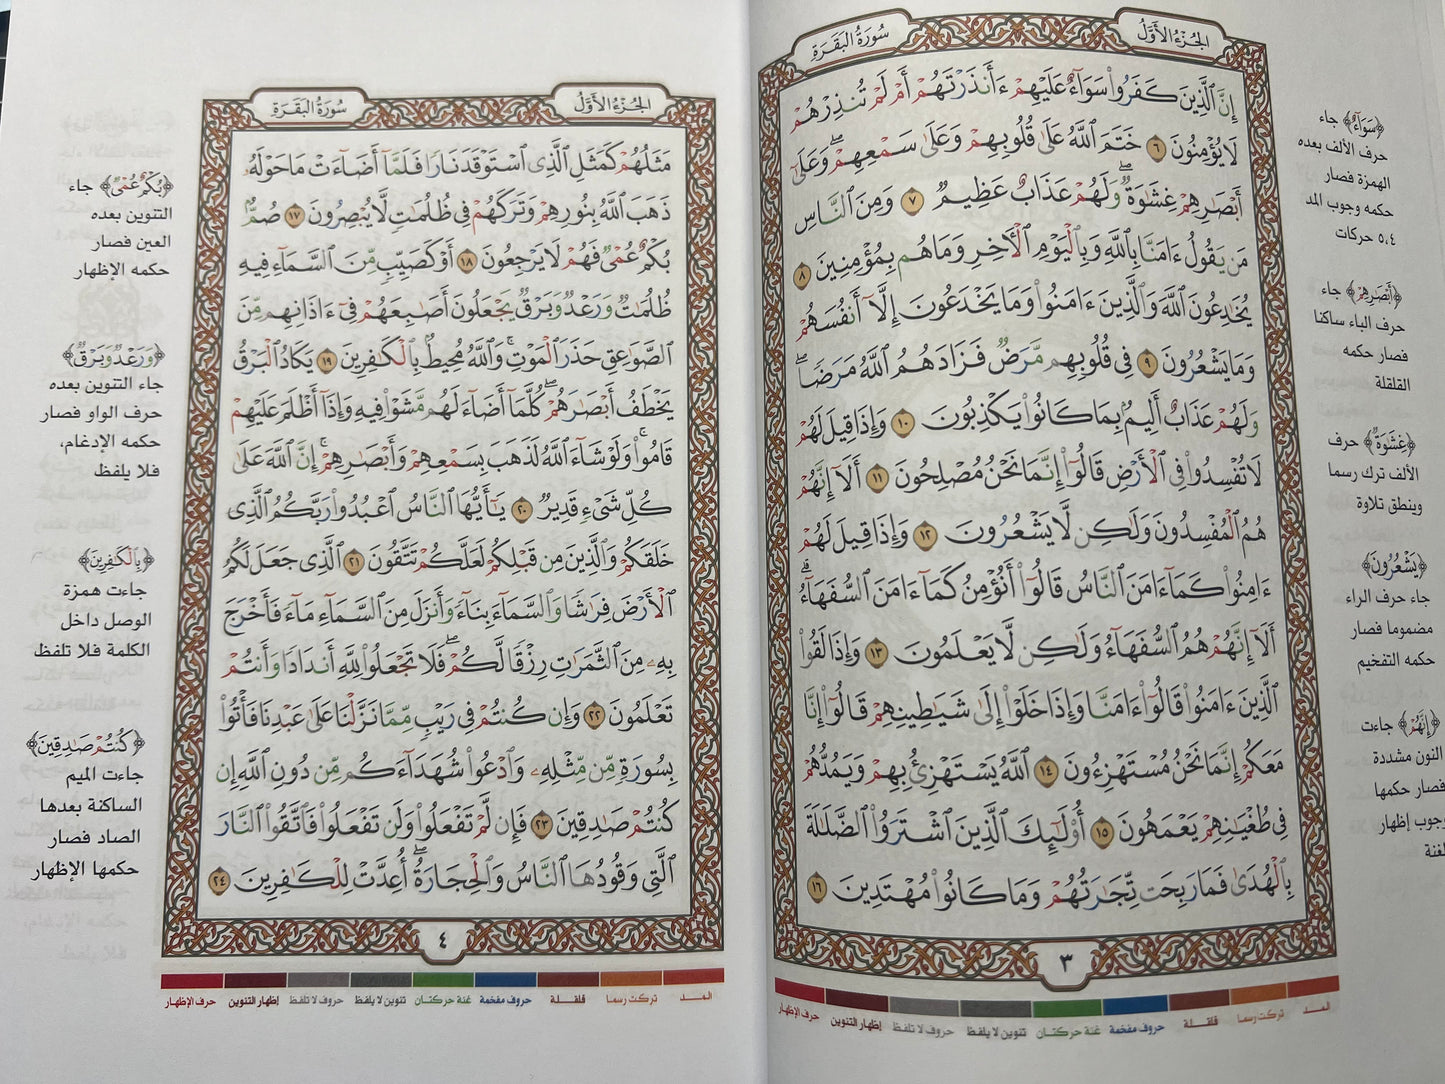 سُورَةُ البَقَرَةِ
الجُزْءُ الأَوَّلُ
إِنَّ ٱلَّذِينَ كَفَرُوا۟ سَوَآءٌ عَلَيْهِمْ ءَأَنذَرْتَهُمْ أَمْ لَمْ تُنذِرْهُمْ
لَا يُؤْمِنُونَ ٦ خَتَمَ ٱللَّهُ عَلَىٰ قُلُوبِهِمْ وَعَلَىٰ سَمْعِهِمْ ۖ وَعَلَىٰٓ
أَبْصَـٰرِهِمْ غِشَـٰوَةٌ ۖ وَلَهُمْ عَذَابٌ عَظِيمٌ ٧ وَمِنَ ٱلنَّاسِ
مَن يَقُولُ ءَامَنَّا بِٱللَّهِ وَبِٱلْيَوْمِ ٱلْـَٔاخِرِ وَمَا هُم بِمُؤْمِنِينَ ٨
يُخَـٰدِعُونَ ٱللَّهَ وَٱلَّذِينَ ءَامَنُوا۟ وَمَا يَخْدَعُونَ إِلَّآ أَنفُسَهُمْ
وَمَا يَشْعُرُونَ ٩ فِى قُلُوبِهِم مَّرَضٌ فَزَادَهُمُ ٱللَّهُ مَرَضًا ۖ
وَلَهُمْ عَذَابٌ أَلِيمٌۢ بِمَا كَانُوا۟ يَكْذِبُونَ ١٠ وَإِذَا قِيلَ لَهُمْ
لَا تُفْسِدُوا۟ فِى ٱلْأَرْضِ قَالُوٓا۟ إِنَّمَا نَحْنُ مُصْلِحُونَ ١١ أَلَآ إِنَّهُمْ
هُمُ ٱلْمُفْسِدُونَ وَلَـٰكِن لَّا يَشْعُرُونَ ١٢ وَإِذَا قِيلَ لَهُمْ
ءَامِنُوا۟ كَمَآ ءَامَنَ ٱلنَّاسُ قَالُوٓا۟ أَنُؤْمِنُ كَمَآ ءَامَنَ ٱلسُّفَهَآءُ ۗ
أَلَآ إِنَّهُمْ هُمُ ٱلسُّفَهَآءُ وَلَـٰكِن لَّا يَعْلَمُونَ ١٣ وَإِذَا لَقُوا۟
ٱلَّذِينَ ءَامَنُوا۟ قَالُوٓا۟ ءَامَنَّا وَإِذَا خَلَوْا۟ إِلَىٰ شَيَـٰطِينِهِمْ قَالُوٓا۟ إِنَّا
مَعَكُمْ إِنَّمَا نَحْنُ مُسْتَهْزِءُونَ ١٤ ٱللَّهُ يَسْتَهْزِئُ بِهِمْ وَيَمُدُّهُمْ
فِى طُغْيَـٰنِهِمْ يَعْمَهُونَ ١٥ أُو۟لَـٰٓئِكَ ٱلَّذِينَ ٱشْتَرَوُا۟ ٱلضَّلَـٰلَةَ
بِٱلْهُدَىٰ فَمَا رَبِحَت تِّجَـٰرَتُهُمْ وَمَا كَانُوا۟ مُهْتَدِينَ ١٦
٣
﴿سَوَآءٌ﴾ جاء
حرف الألف بعده
الهمزة فصار
حكمه وجوب المد
٥،٤ حركات
﴿أَبْصَـٰرِهِمْ﴾ جاء
حرف الباء ساكنا
فصار حكمه
القلقلة
﴿غِشَـٰوَةٌ﴾ حرف
الألف ترك رسما
وينطق تلاوة
﴿يَشْعُرُونَ﴾
جاء حرف الراء
مضموما فصار
حكمه التفخيم
﴿إِنَّهُمْ﴾ جاءت
النون مشددة
فصار حكمها
وجوب إظهار
لغنة
المــد
تركت رسما
قلقلة
حروف مفخمة
غنة حركتان
تنوين لا يلفظ
حروف لا تلفظ
إظهار التنوين
حرف الإظهار
الجُزْءُ الأَوَّلُ
سُورَةُ البَقَرَةِ
مَثَلُهُمْ كَمَثَلِ ٱلَّذِى ٱسْتَوْقَدَ نَارًا فَلَمَّآ أَضَآءَتْ مَا حَوْلَهُۥ
ذَهَبَ ٱللَّهُ بِنُورِهِمْ وَتَرَكَهُمْ فِى ظُلُمَـٰتٍ لَّا يُبْصِرُونَ ١٧ صُمٌّۢ
بُكْمٌ عُمْىٌ فَهُمْ لَا يَرْجِعُونَ ١٨ أَوْ كَصَيِّبٍ مِّنَ ٱلسَّمَآءِ فِيهِ
ظُلُمَـٰتٌ وَرَعْدٌ وَبَرْقٌ يَجْعَلُونَ أَصَـٰبِعَهُمْ فِىٓ ءَاذَانِهِم مِّنَ
ٱلصَّوَٰعِقِ حَذَرَ ٱلْمَوْتِ ۚ وَٱللَّهُ مُحِيطٌۢ بِٱلْكَـٰفِرِينَ ١٩ يَكَادُ ٱلْبَرْقُ
يَخْطَفُ أَبْصَـٰرَهُمْ ۖ كُلَّمَآ أَضَآءَ لَهُم مَّشَوْا۟ فِيهِ وَإِذَآ أَظْلَمَ عَلَيْهِمْ
قَامُوا۟ ۚ وَلَوْ شَآءَ ٱللَّهُ لَذَهَبَ بِسَمْعِهِمْ وَأَبْصَـٰرِهِمْ ۚ إِنَّ ٱللَّهَ عَلَىٰ
كُلِّ شَىْءٍ قَدِيرٌ ٢٠ يَـٰٓأَيُّهَا ٱلنَّاسُ ٱعْبُدُوا۟ رَبَّكُمُ ٱلَّذِى
خَلَقَكُمْ وَٱلَّذِينَ مِن قَبْلِكُمْ لَعَلَّكُمْ تَتَّقُونَ ٢١ ٱلَّذِى جَعَلَ لَكُمُ
ٱلْأَرْضَ فِرَٰشًا وَٱلسَّمَآءَ بِنَآءً وَأَنزَلَ مِنَ ٱلسَّمَآءِ مَآءً فَأَخْرَجَ
بِهِۦ مِنَ ٱلثَّمَرَٰتِ رِزْقًا لَّكُمْ ۖ فَلَا تَجْعَلُوا۟ لِلَّهِ أَندَادًا وَأَنتُمْ
تَعْلَمُونَ ٢٢ وَإِن كُنتُمْ فِى رَيْبٍ مِّمَّا نَزَّلْنَا عَلَىٰ عَبْدِنَا فَأْتُوا۟
بِسُورَةٍ مِّن مِّثْلِهِۦ وَٱدْعُوا۟ شُهَدَآءَكُم مِّن دُونِ ٱللَّهِ إِن
كُنتُمْ صَـٰدِقِينَ ٢٣ فَإِن لَّمْ تَفْعَلُوا۟ وَلَن تَفْعَلُوا۟ فَٱتَّقُوا۟ ٱلنَّارَ
ٱلَّتِى وَقُودُهَا ٱلنَّاسُ وَٱلْحِجَارَةُ ۖ أُعِدَّتْ لِلْكَـٰفِرِينَ ٢٤
٤
﴿بُكْمٌ عُمْىٌ﴾ جاء
التنوين بعده
العين فصار
حكمه الإظهار
﴿وَرَعْدٌ وَبَرْقٌ﴾
جاء التنوين بعده
حرف الواو فصار
حكمه الإدغام،
فلا يلفظ
﴿بِٱلْكَـٰفِرِينَ﴾
جاءت همزة
الوصل داخل
الكلمة فلا تلفظ
﴿كُنتُمْ صَـٰدِقِينَ﴾
جاءت الميم
الساكنة بعدها
الصاد فصار
حكمها الإظهار
المــد
تركت رسما
قلقلة
حروف مفخمة
غنة حركتان
تنوين لا يلفظ
حروف لا تلفظ
إظهار التنوين
حرف الإظهار